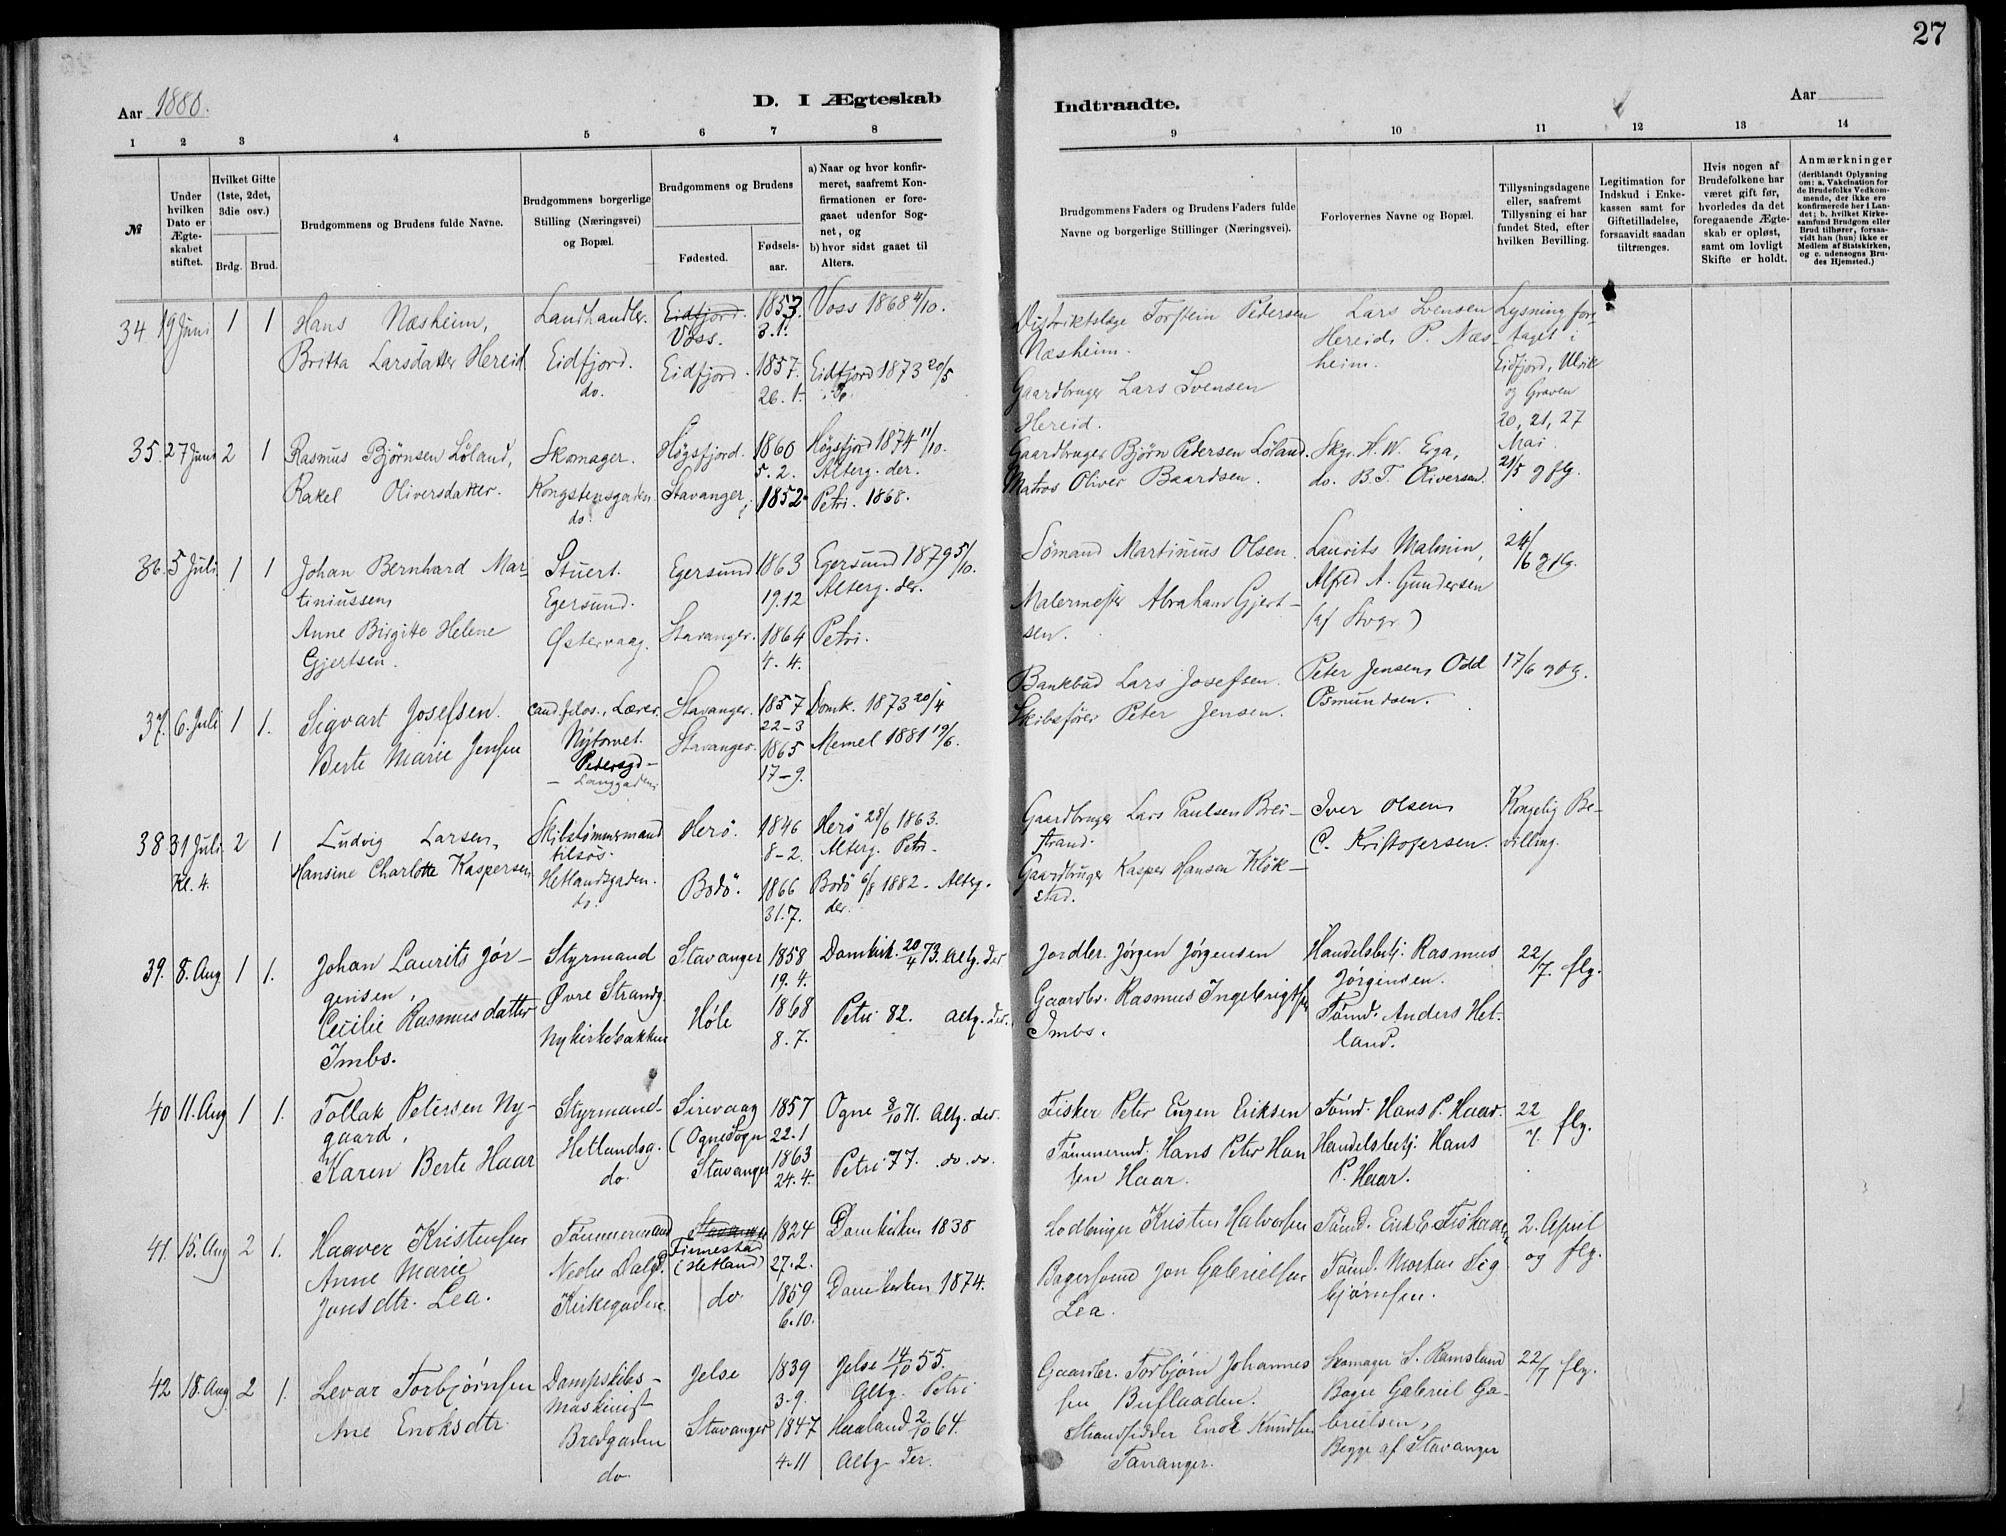 27
Aar 1880.
D. I Ægteskab
Indtraadte.
Aar
1 2 3 4 5 6 7 8
9 10 11 12 13 14
№
Under hvilken Dato er Ægteskabet stiftet.
Hvilket Gifte (1ste, 2det, 3die osv.)
Brdg. Brud.
Brudgommens og Brudens fulde Navne.
Brudgommens borgerlige Stilling (Næringsvei) og Bopæl.
Brudgommens og Brudens
Fødested.
Fødselsaar.
a) Naar og hvor konfirmeret, saafremt Konfirmationen er foregaaet udenfor Sognet, og
b) hvor sidst gaaet til Alters.
Brudgommens Faders og Brudens Faders fulde Navne og borgerlige Stillinger (Næringsvei).
Forlovernes Navne og Bopæl.
Tillysningsdagene eller, saafremt Tillysning ei har fundet Sted, efter hvilken Bevilling.
Legitimation for Indskud i Enkekassen samt for Giftetilladelse, forsaavidt saadan tiltrænges.
Hvis nogen af Brudefolkene har været gift før, hvorledes da det foregaaende Ægteskab er opløst, samt om lovligt Skifte er holdt.
Anmærkninger
(deriblandt Oplysning om: a. Vakcination for de Brudefolks Vedkommende, der ikke ere konfirmerede her i Landet; b. hvilket Kirkesamfund Brudgom eller Brud tilhører, forsaavidt han (hun) ikke er Medlem af Statskirken, og c. udensogns Brudes Hjemsted.)
34 19 Juni 1 1 Hans Næsheim, Landhandler. Eidfjord. 1853. Voss 1868 4/10.
Voss. 3.1.
Britta Larsdatter Hereid Eidfjord. Eidfjord. 1857. Eidfjord 1873 20/5
do. 26.1.
Distriktslæge Torstein Pedersen Lars Svensen Lysning for-
Næsheim. Hereid, P. Næs- taget i
heim. Eidfjord, Ulvik
Gaardbruger Lars Svensen og Graven
Hereid. 20, 21, 27
Mai.
35. 27 Juni 2 1 Rasmus Bjørnsen Løland, Skomager. Høgsfjord. 1860 Høgsfjord 1874 11/10.
5.2. Alterg. der.
Rakel Oliversdatter. Kongstensgaden. Stavanger. 1852 Petri. 1868.
do.
Gaardbruger Bjørn Pedersen Løland. Skgr. A. W. Erga, 21/5 og flg.
Matros Oliver Baardsen. do. B. T. Oliversen.
36. 5 Juli 1 1 Johan Bernhard Mar- Stuert. Egersund 1863 Egersund 1879 5/10.
tiniussen, Egersund. 19.12 Alterg. der.
Anne Birgitte Helene Østervaag. Stavanger. 1864 Petri.
Gjertsen. 4.4.
Sømand Martinius Olsen. Laurits Malmin, 24/6 og flg.
Malermester Abraham Gjert- Alfred A. Gundersen
sen. (af Stvgr.)
37. 6. Juli 1 1. Sigvart Josefsen. cand. filos., Lærer. Stavanger. 1857 Domk. 1873 20/4
Nytorvet. 22-3
Berte Marie Jensen Pedersgd- Stavanger. 1865 Memel 1881 19/6.
- Langgaden 17-9.
Bankbud Lars Josefsen. Peter Jensen, Odd 17/6 og flg.
Skibsfører Peter Jensen. Osmundsen.
38 31 Juli 2 1 Ludvig Larsen, Skibstømmermand Herø. 1846 Herø 28/6 1863.
Kl. 4. tilsøs. 8-2. Alterg. Petri.
Hansine Charlotte Kaspersen Hetlandsgaden. Bodø. 1866 Bodø 6/8 1882. Alterg.
do. 31.7. der.
Gaardbruger Lars Paulsen Brei- Iver Olsen Kongelig Be-
strand. C. Kristofersen. villing.
Gaardbruger Kasper Hansen Kløk-
stad.
39. 8. Aug. 1 1. Johan Laurits Jør- Styrmand Stavanger 1858 Domkirk. 20/4 73. Altg. der
gensen, Øvre Strandg. 19.4.
Cecilie Rasmusdatter Nykirkebakken Høle 1868 Petri 82. altg. der.
Imbs. 8.7.
Jordbr. Jørgen Jørgensen Handelsbetj. Rasmus 22/7. flg.
Jørgensen.
Gaardbr. Rasmus Ingebrigtsen Tømd. Anders Het-
Imbs. land.
40 11. Aug 1 1. Tollak Petersen Ny- Styrmand- Sirevaag 1857 Ogne 8/10 71. Altg. der.
gaard, Hetlandsg. (Ognesogn 22.1
Karen Berte Haar do. Stavanger 1863 Petri 77. do. do.
24.4.
Fisker Peter Eugen Eriksen Tømd. Hans P. Haar. 22/7. flg.
Tømmermd. Hans Peter Han Handelsbetj. Hans
sen Haar. P. Haar.
41. 15. Aug 2 1. Haaver Kristensen Tømmermand Stavanger 1824 Domkirken 1838
Anne Marie Nedre Dalgd. Finnestad (Hetland) 27.2.
Jonsdtr. Lea. Kirkegaden. do. 1859 Domkirken 1874.
6.10.
Lodbringer Kristen Halvorsen Tømd. Erik E. Fiskaaen 2. April
Bagersvend Jon Gabrielsen Tømd. Morten Sig og flg.
Lea. bjørnsen.
42 18. Aug 2 1. Levar Torbjørnsen Dampskibs- Jelse 1839 Jelse 14/10 55.
Maskinist 3.9. Altg. Petri
Ane Enoksdtr. Bredgaden Stavanger 1847 Haaland 2/10 64.
do. 4.11 Altg. der.
Gaardbr. Torbjørn Johannes Skomager S. Ramsland 22/7 flg.
sen Buflaaden. Bager Gabriel Ga-
Strandsidder Enok Knudsen brielsen,
Tananger. Begge af Stavanger